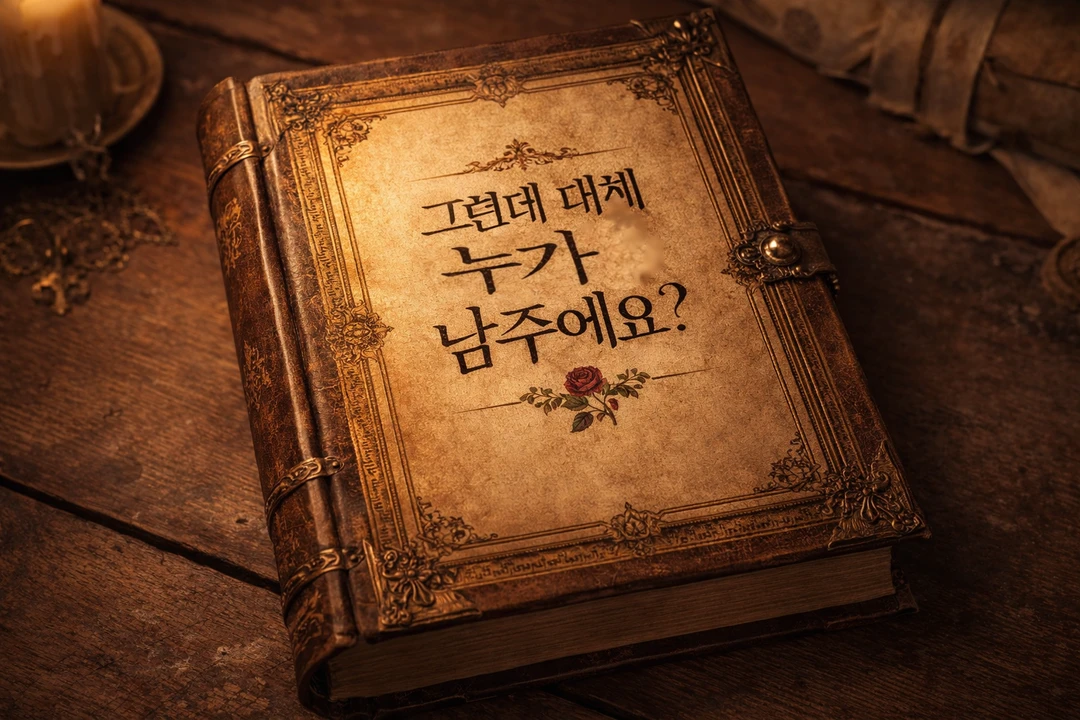 그런데 대체
누가
남주에요?